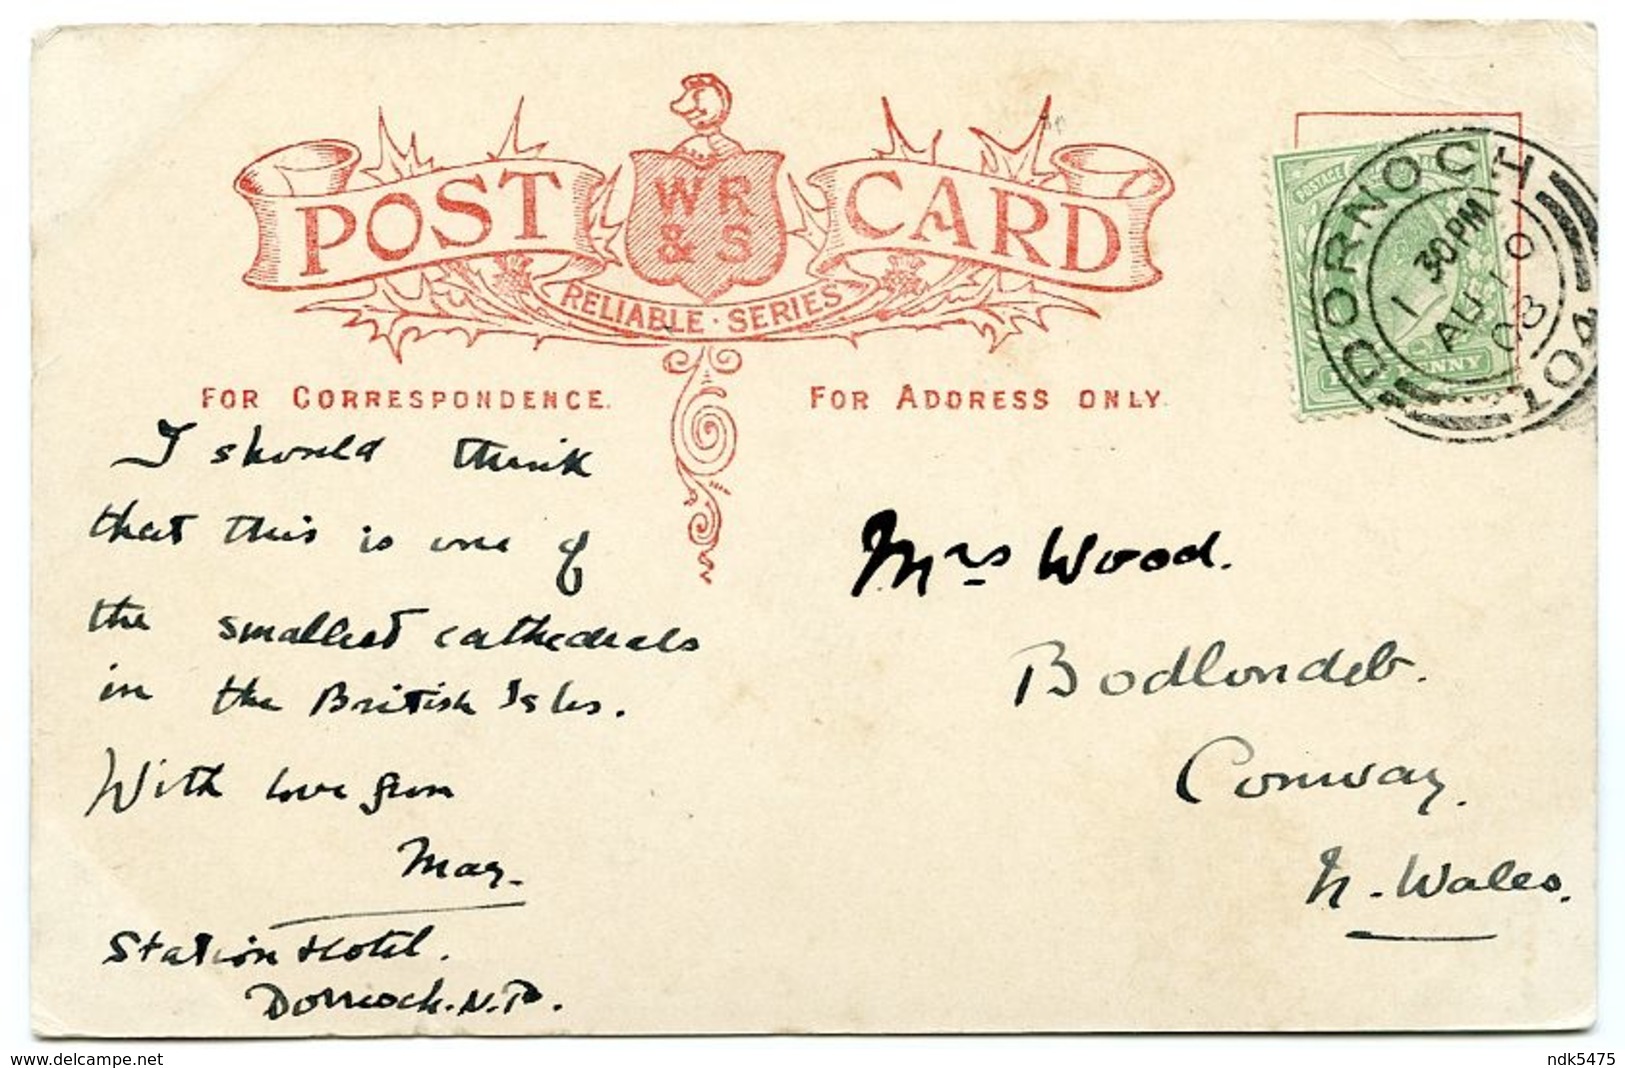 POST CARD
WR
& S
RELIABLE · SERIES
FOR CORRESPONDENCE.
FOR ADDRESS ONLY.
POSTAGE
HALFPENNY
DORNOCH
1 30PM
AU 10
08
104
I should think
that this is one of
the smallest cathedrals
in the British Isles.
With love from
May.
Station Hotel.
Dornoch. N.B.
Mrs Wood.
Bodlondeb.
Conway.
N. Wales.
delcampe.net
ndk5475